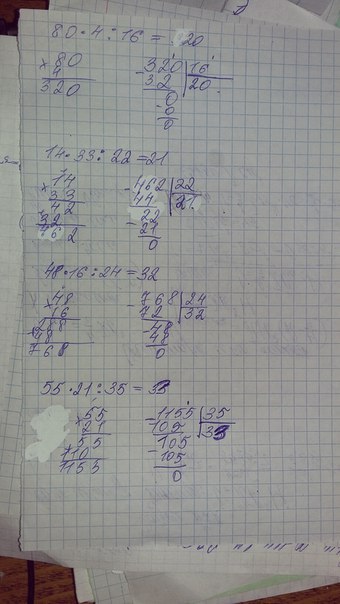 80·4÷16 = 320
×80   -320|16
4   32   20
320   0
-0
0
14·33÷22=21
×14   -462|22
33   44   21
42   22
42   -21
462   0
48·16÷24=32
×48   -768|24
16   72   32
288   -48
48   48
768   0
55·21÷35=33
×55   -1155|35
21   105   33
55   105
110   -105
1155   0